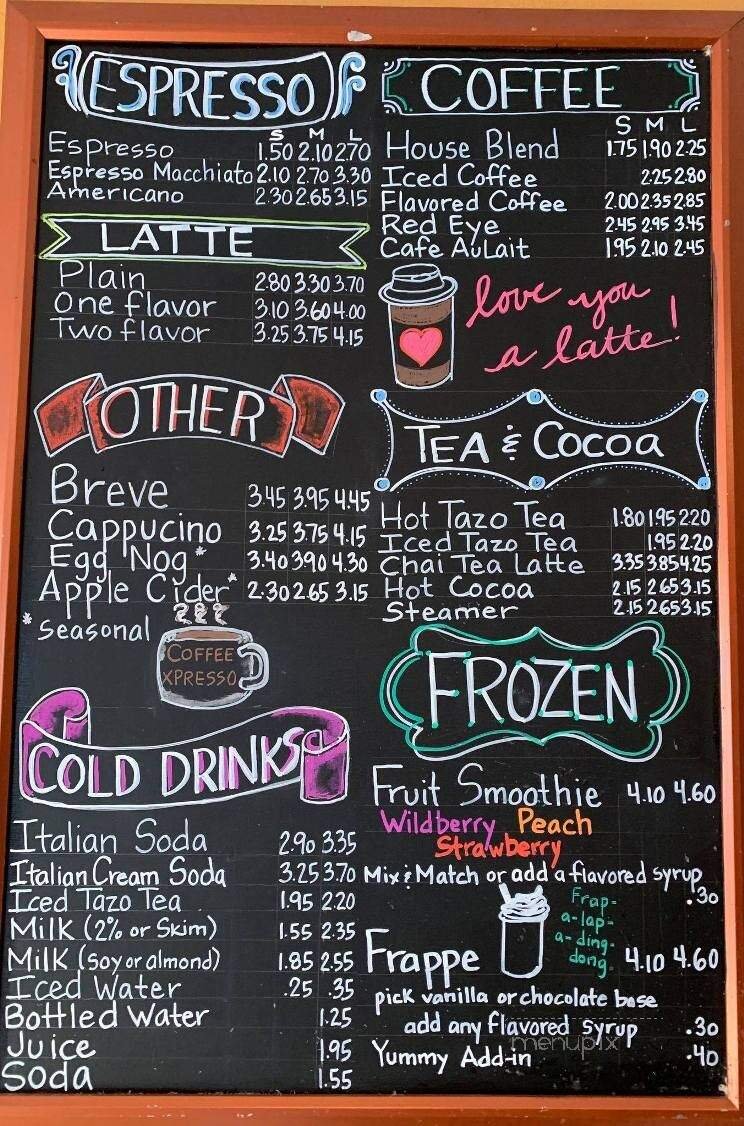 ESPRESSO
S M L
Espresso 1.50 2.10 2.70
Espresso Macchiato 2.10 2.70 3.30
Americano 2.30 2.65 3.15
LATTE
Plain 2.80 3.30 3.70
One flavor 3.10 3.60 4.00
Two flavor 3.25 3.75 4.15
OTHER
Breve 3.45 3.95 4.45
Cappucino 3.25 3.75 4.15
Egg Nog* 3.40 3.90 4.30
Apple Cider* 2.30 2.65 3.15
*Seasonal
COFFEE
XPRESSO
COLD DRINKS
Italian Soda 2.90 3.35
Italian Cream Soda 3.25 3.70
Iced Tazo Tea 1.95 2.20
Milk (2% or Skim) 1.55 2.35
Milk (soy or almond) 1.85 2.55
Iced Water .25 .35
Bottled Water 1.25
Juice 1.95
Soda 1.55
COFFEE
S M L
House Blend 1.75 1.90 2.25
Iced Coffee 2.25 2.80
Flavored Coffee 2.00 2.35 2.85
Red Eye 2.45 2.95 3.45
Cafe AuLait 1.95 2.10 2.45
love you
a latte!
TEA & COCOA
Hot Tazo Tea 1.80 1.95 2.20
Iced Tazo Tea 1.95 2.20
Chai Tea Latte 3.35 3.85 4.25
Hot Cocoa 2.15 2.65 3.15
Steamer 2.15 2.65 3.15
FROZEN
Fruit Smoothie 4.10 4.60
Wildberry Peach
Strawberry
Mix & Match or add a flavored syrup
.30
Frap-
a-lap-
a-ding-
dong.
Frappe 4.10 4.60
pick vanilla or chocolate base
add any flavored syrup .30
Yummy Add-in .40
menupix